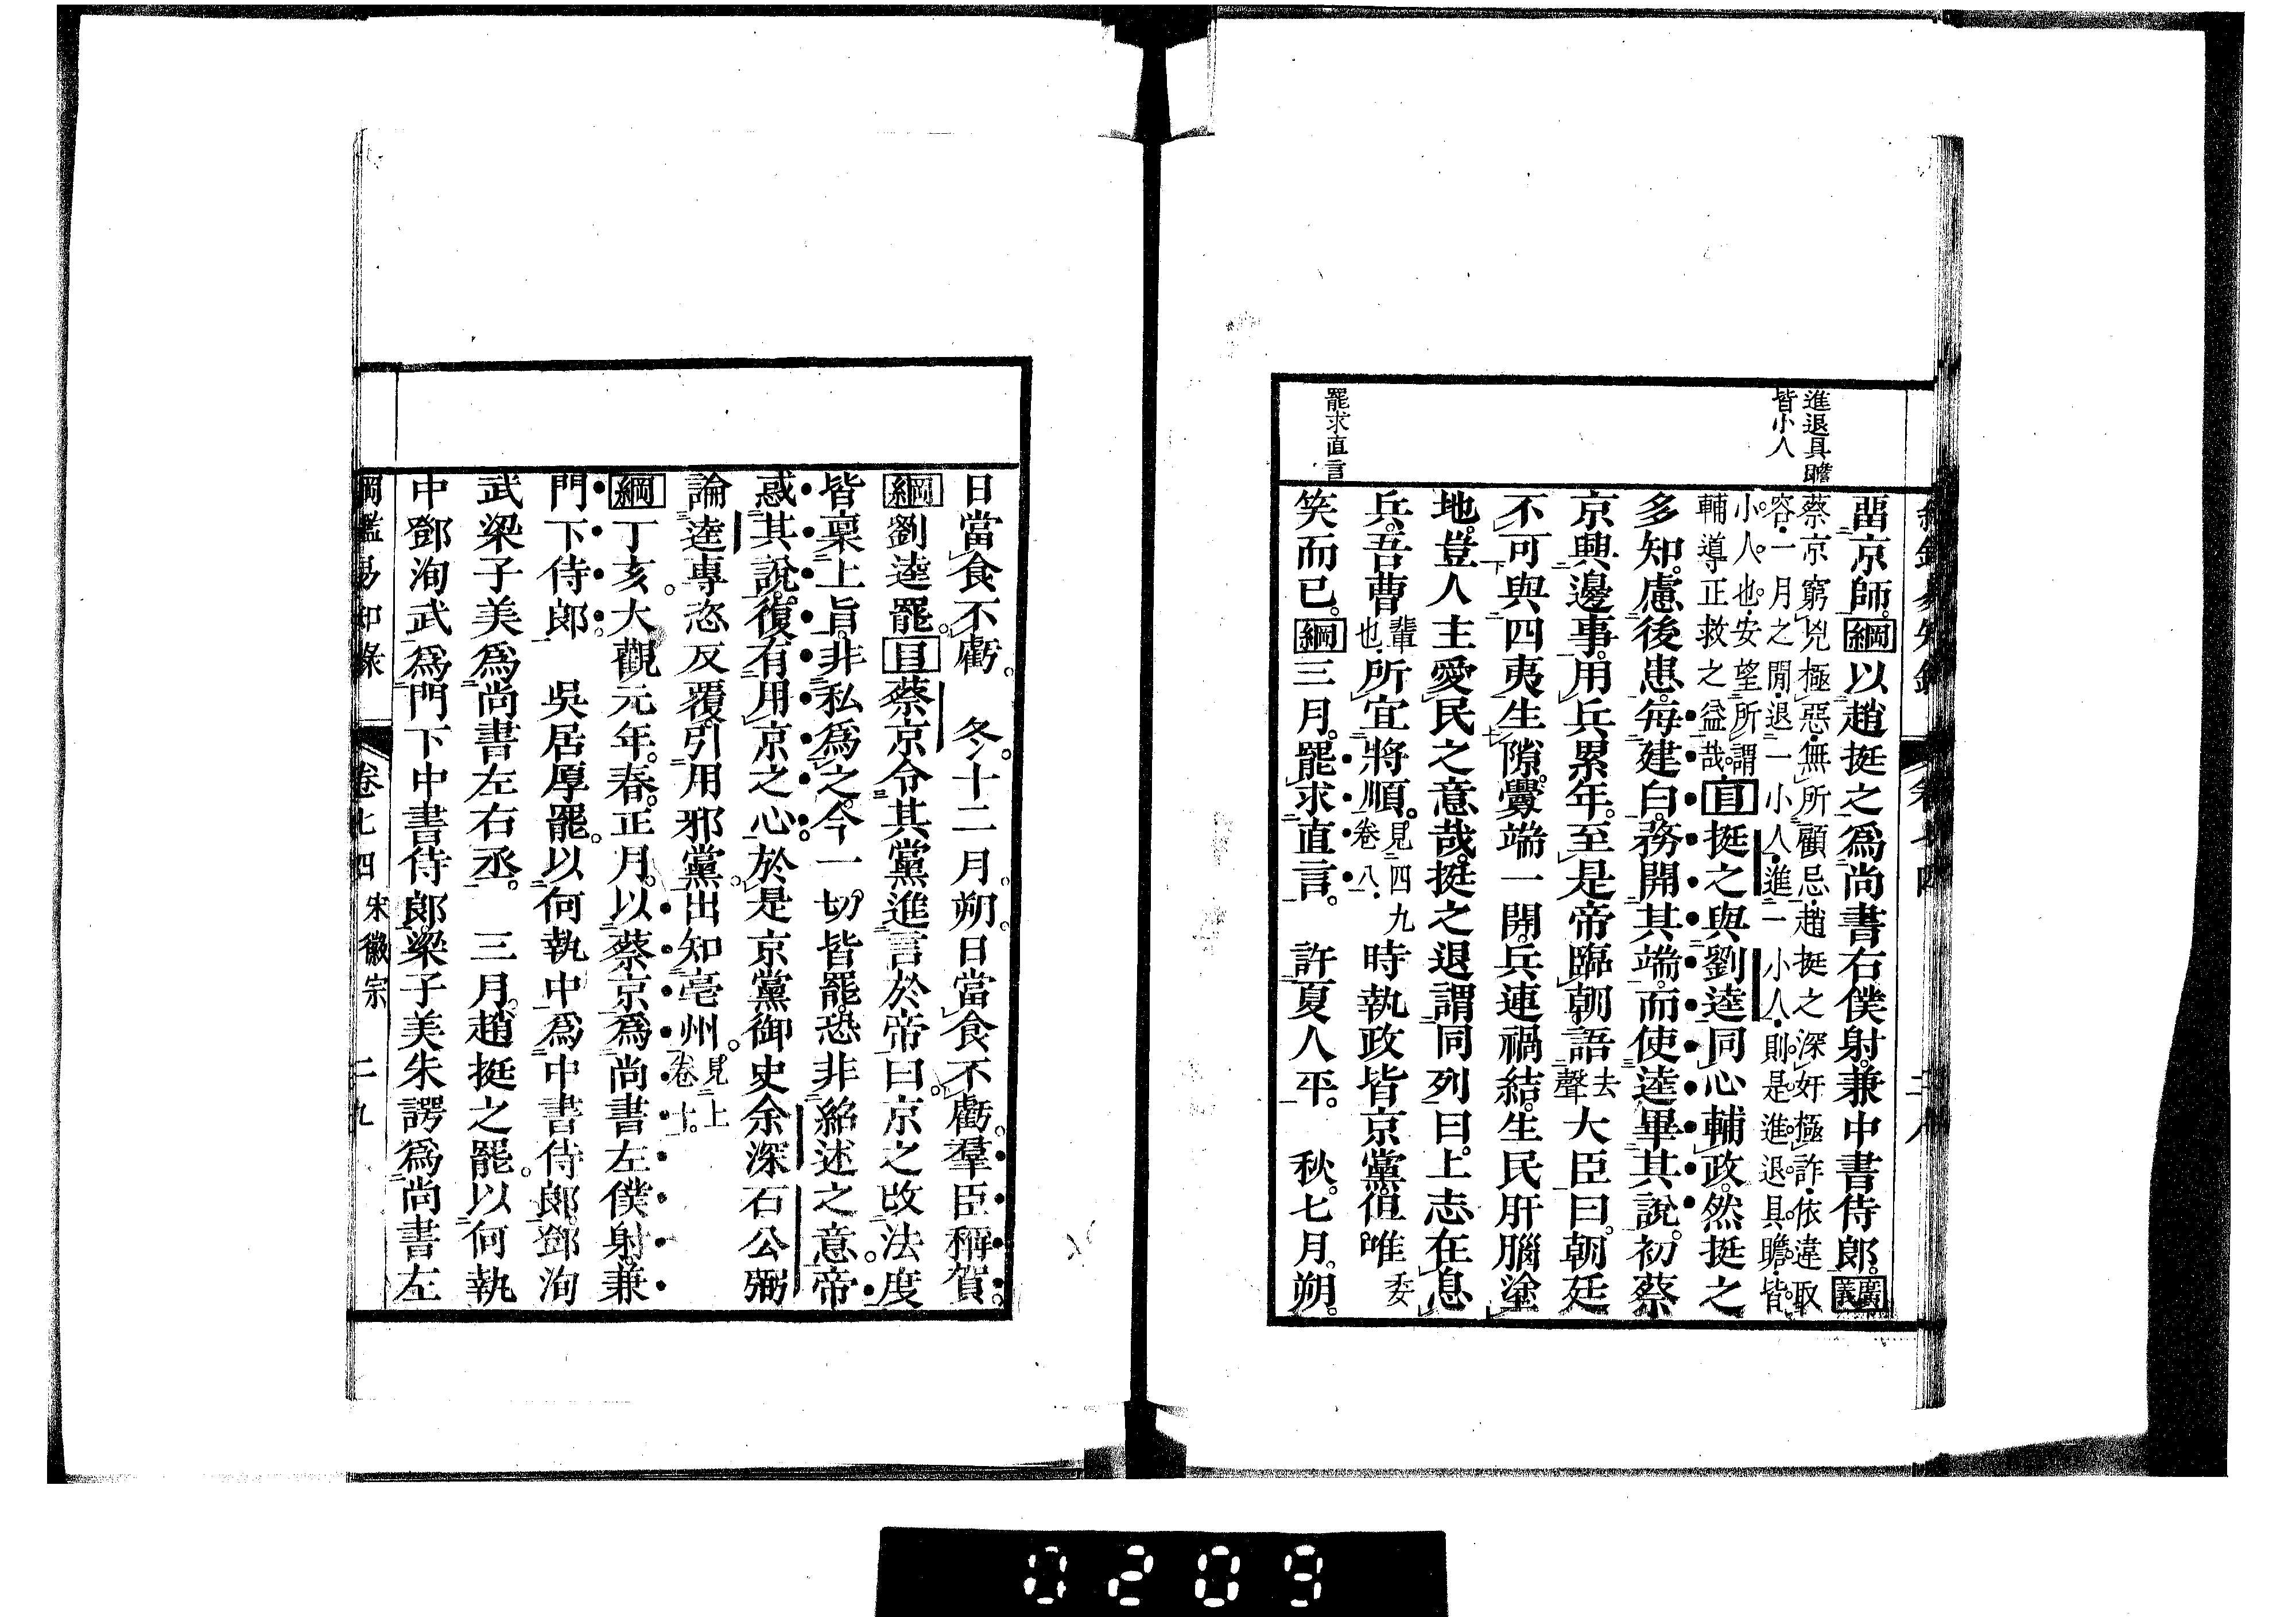 進退具瞻
皆小人
罷求直言
畱京師。綱以趙挺之爲尚書右僕射。兼中書侍郎。廣義
蔡京窮兇極惡。無所顧忌。趙挺之深奸極詐。依違取
容。一月之閒。退一小人。進一小人。則是進退具瞻。皆
小人也。安望所謂
輔導正救之益哉。目挺之與劉逵同心輔政。然挺之
多知。慮後患。每建白。務開其端。而使逵畢其說。初蔡
京興邊事。用兵累年。至是帝臨朝語去聲大臣曰。朝廷
不可與四夷生隙。釁端一開。兵連禍結。生民肝腦塗
地。豈人主愛民之意哉。挺之退謂同列曰。上志在息
兵。吾曹輩也。所宜將順。見四九卷八。時執政皆京黨。但唯委
笑而已。綱三月。罷求直言。 許夏人平。 秋。七月。朔。
日當食不虧。 冬。十二月。朔。日當食不虧。羣臣稱賀。
綱劉逵罷。目蔡京令其黨進言於帝曰。京之改法度
皆稟上旨。非私爲之。今一切皆罷。恐非紹述之意。帝
惑其說。復有用京之心。於是京黨御史余深石公弼
論逵專恣反覆。引用邪黨。出知亳州。見上卷十。
綱丁亥。大觀元年。春。正月。以蔡京爲尚書左僕射兼
門下侍郎。 吳居厚罷。以何執中爲中書侍郎。鄧洵
武梁子美爲尚書左右丞。 三月。趙挺之罷。以何執
中鄧洵武爲門下中書侍郎。梁子美朱諤爲尚書左
綱鑑易知錄 卷七四 宋徽宗 二九
0209